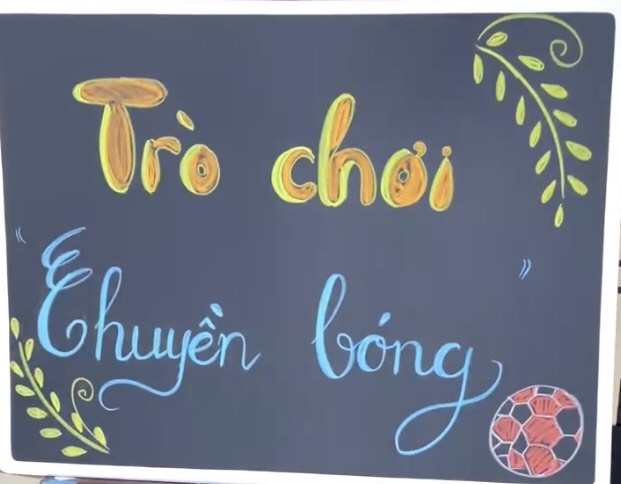 Trò chơi
"Chuyền bóng"